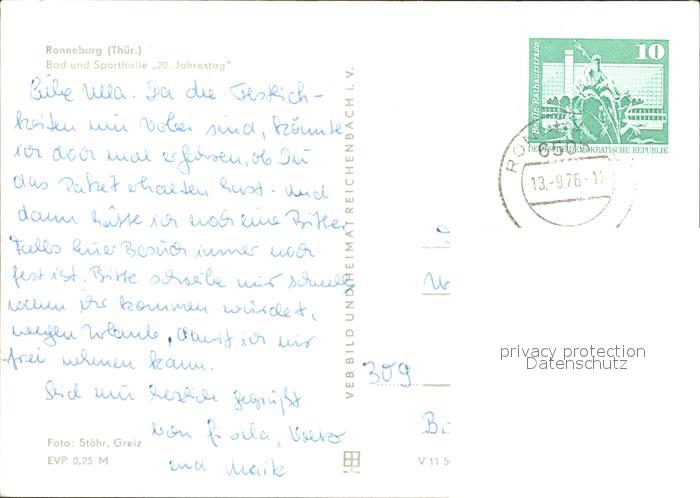 Ronneburg (Thür.)
Bad und Sporthalle „20. Jahrestag"
Liebe Ulla. Da die Festlich-
keiten nun vorbei sind, könnte
ich doch mal erfahren, ob Du
das Paket erhalten hast. Und
dann hätte ich noch eine Bitte.
Falls Euer Besuch immer noch
fest ist. Bitte schreibe mir schnell
wann ihr kommen würdet,
wegen Urlaub, damit ich mir
frei nehmen kann.
Seid nun herzlich gegrüßt
von Gisela,
und Maik
Foto: Stöhr, Greiz
EVP 0,25 M
VEB BILD UND HEIMAT REICHENBACH I. V.
10
Berlin, Rathausstraße
DEUTSCHE DEMOKRATISCHE REPUBLIK
13.-9.76-12
309
V 11 50
privacy protection
Datenschutz